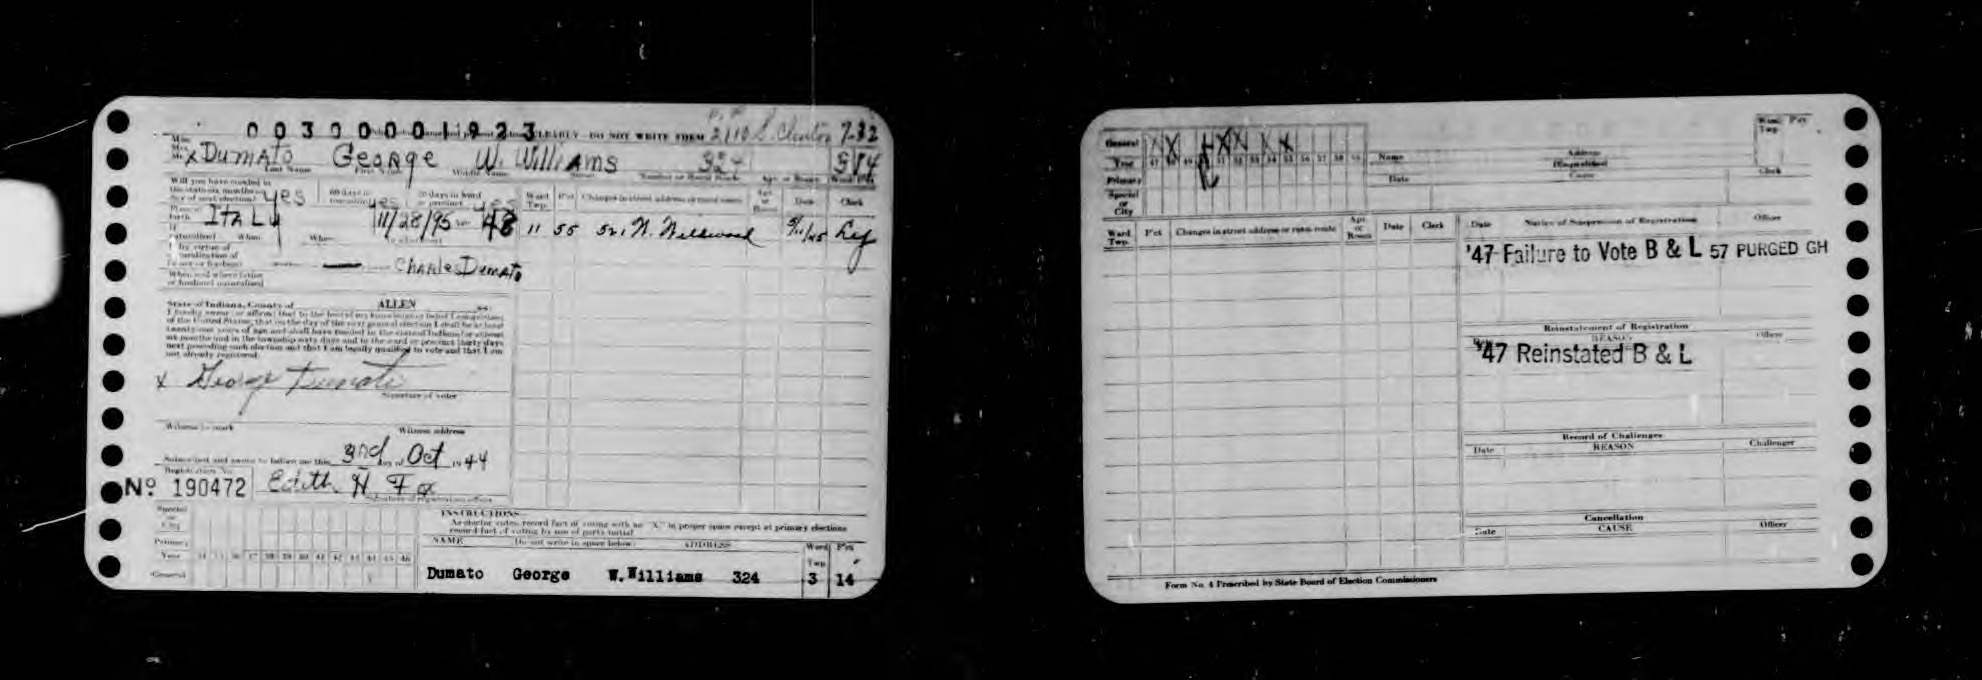 003000001923
CLEARLY - DO NOT WRITE FORM 2110 S. Clinton 7-32
Miss
Mrs.
Mr. x Dumato George W. Williams 324 3 14
Last Name First Name Middle Name Street Number or Rural Route Apt. or Room Ward Pct.
Will you have resided in
the state six months on
day of next election? yes 60 days in
township yes 30 days in ward
or precinct yes
Ward
Twp. Pct Changes in street address or rural route Apt.
or
Room Date Clerk
Place of
birth Italy 11/28/95 48
11 55 521 W. Wildwood
If
naturalized When Where
If by virtue of
naturalization of
Charles Dumato
When and where father
or husband naturalized
State of Indiana, County of ALLEN ss:
I hereby swear (or affirm) that to the best of my knowledge and belief I am a citizen
of the United States; that on the day of the next general election I shall be at least
twenty-one years of age and shall have resided in the state of Indiana for at least
six months and in the township sixty days and in the ward or precinct thirty days
next preceding such election and that I am legally qualified to vote and that I am
not already registered.
x George Dumato
Signature of voter
Witness to mark Witness address
Subscribed and sworn to before me this 3rd day of Oct 1944
Registration No.
No 190472 Edith H Fox
Signature of registration officer
Special
or
City
Primary
Year 34 35 36 37 38 39 40 41 42 43 44 45 46
General
INSTRUCTIONS
As elector votes, record fact of voting with an "X" in proper space except at primary elections
record fact of voting by use of party initial
NAME Do not write in space below: ADDRESS Ward
Twp Pct
Dumato George W.Williams 324 3 14
General X X X X X X X
Year 47 48 49 51 52 53 54 55 56 57 58 59
Primary
Special
or
City
Name Address
Date Cause Clerk
Ward
Twp. Pct
Ward
Twp. Pct Changes in street address or rural route Apt
or
Room Date Clerk
Date Notice of Suspension of Registration Officer
'47 Failure to Vote B & L 57 PURGED GH
Reinstatement of Registration
Date REASON Officer
'47 Reinstated B & L
Record of Challenges
Date REASON Challenger
Cancellation
Date CAUSE Officer
Form No. 4 Prescribed by State Board of Election Commissioners